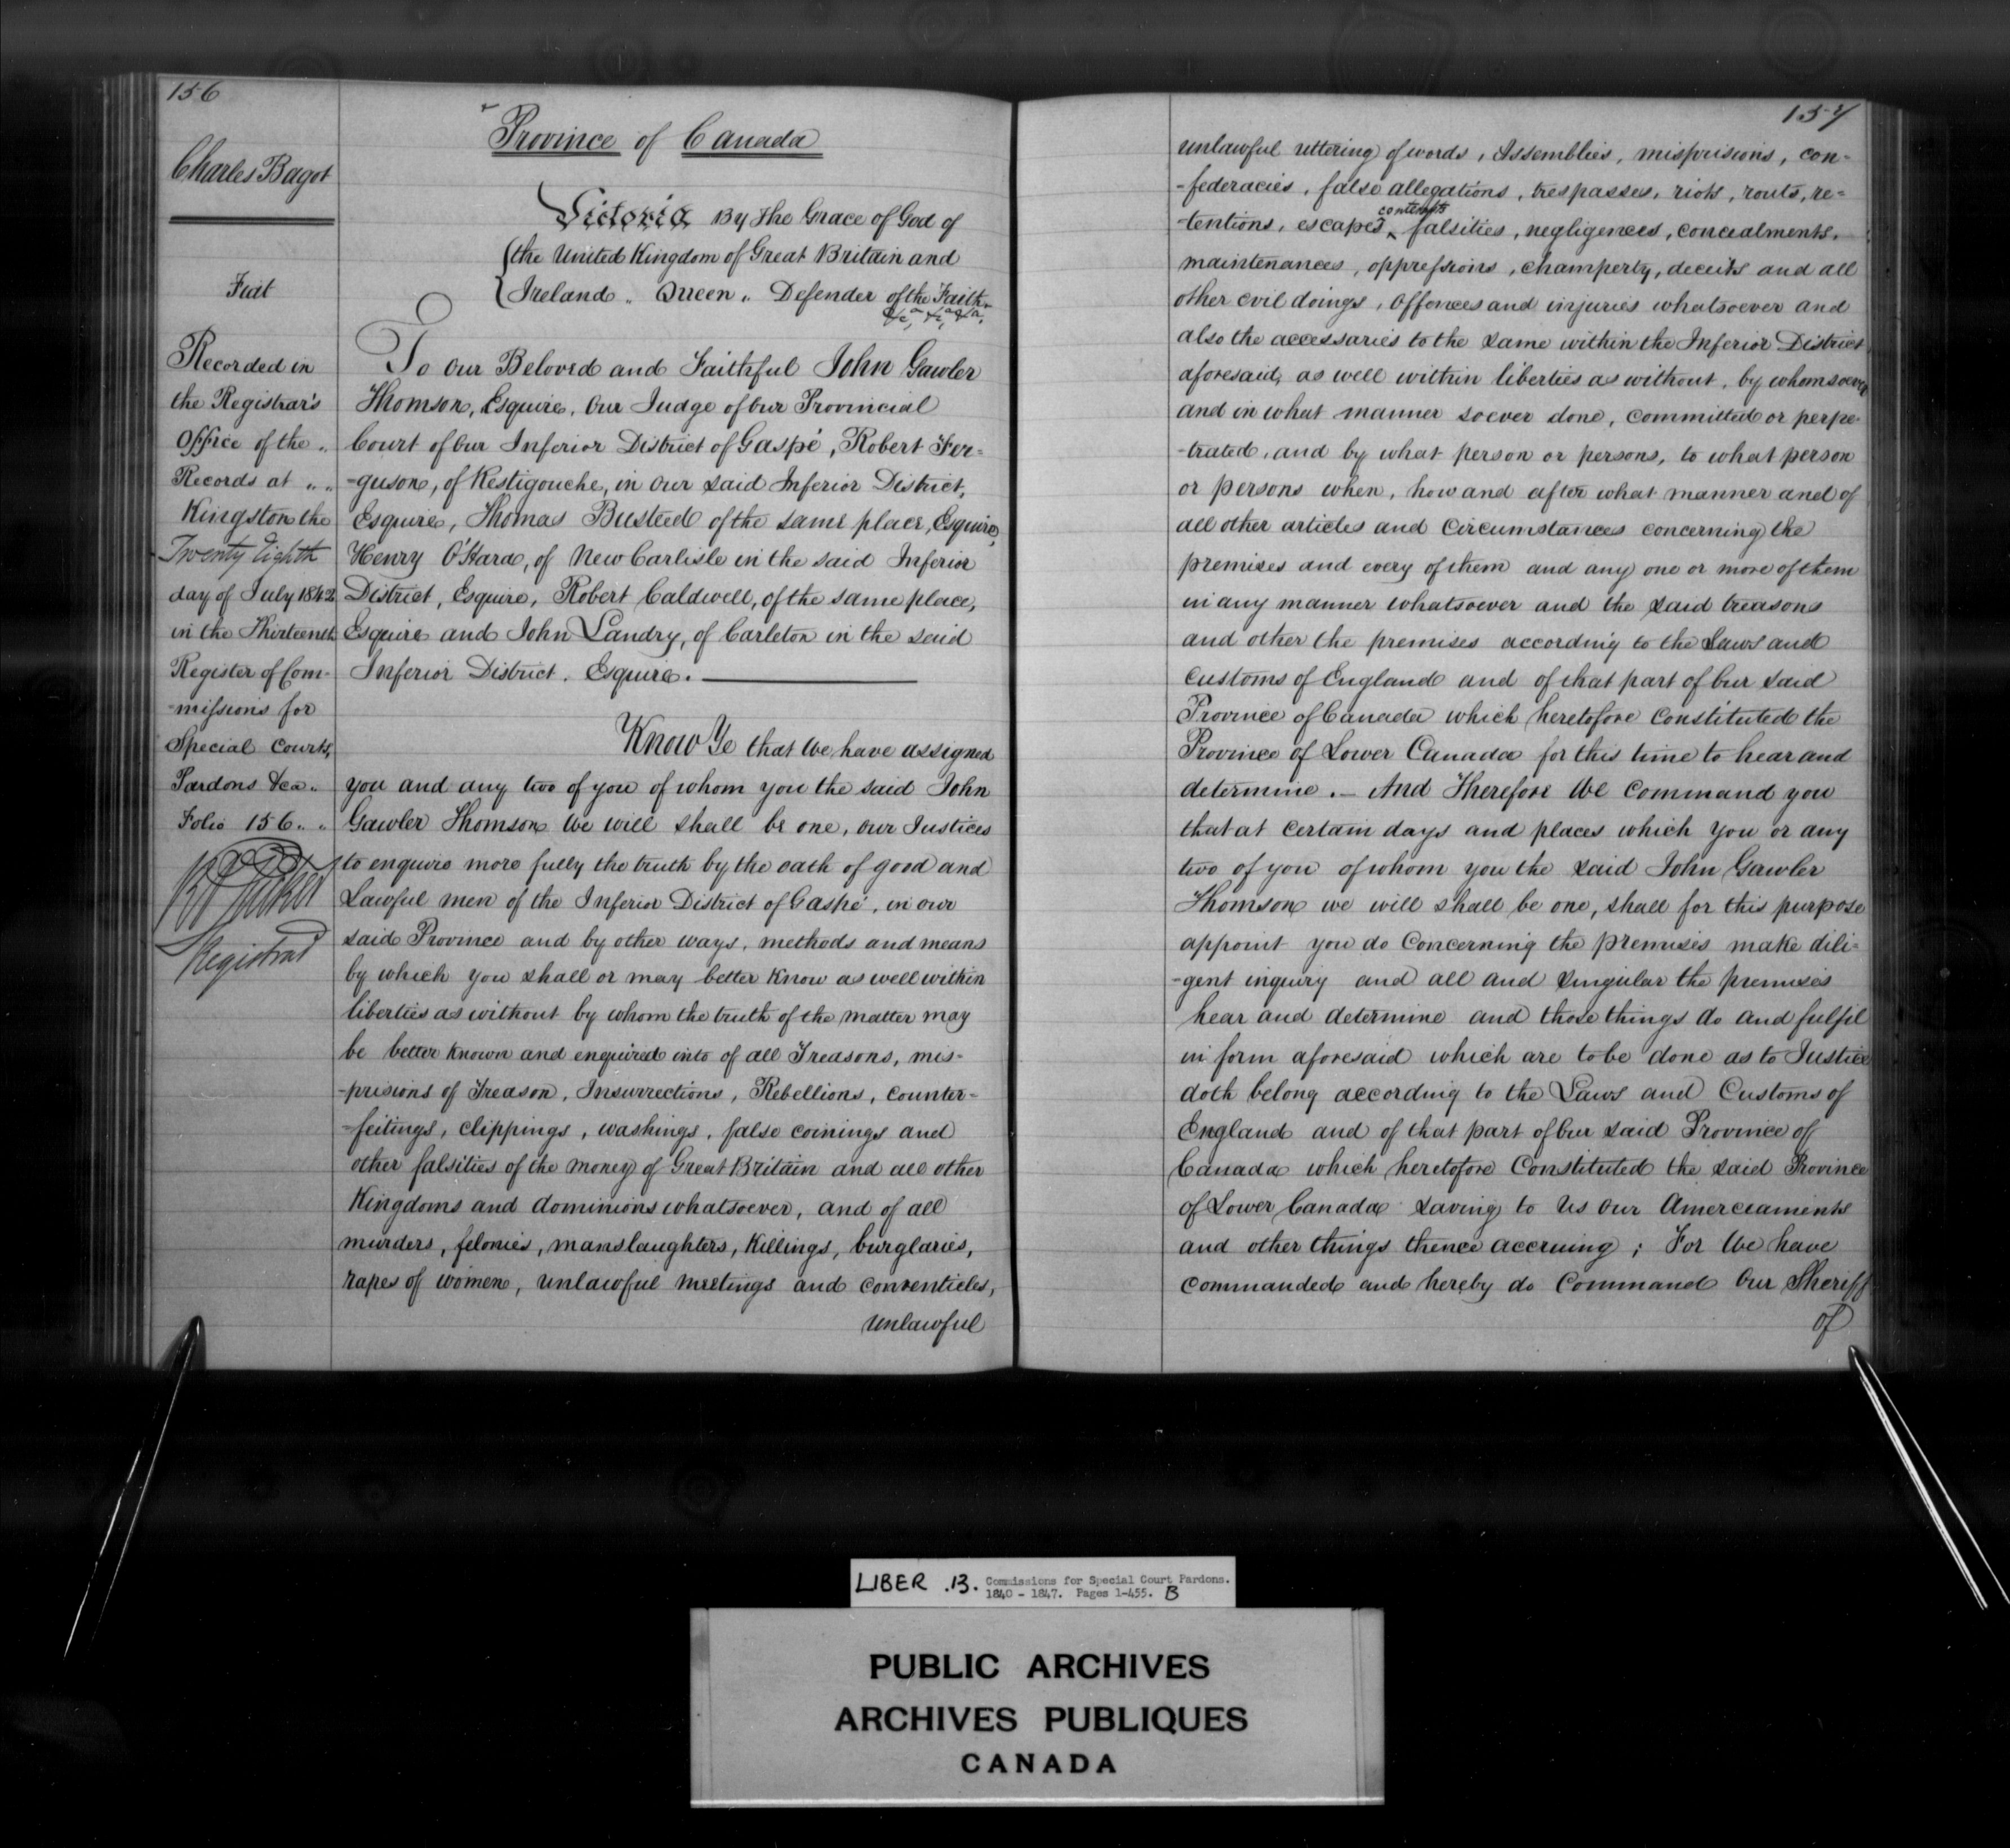 156
Charles Bagot
Fiat
Recorded in
the Registrar's
Office of the „
Records at „ „
Kingston the
Twenty Eighth
day of July 1842
in the Thirteenth
Register of Com-
-missions for
Special Courts,
Pardons &ca „
Folio 156 „ „
Registrar
Province of Canada
Victoria By the Grace of God of
the United Kingdom of Great Britain and
Ireland „ Queen „ Defender of the Faith
&ca, &ca, &ca,
To Our Beloved and Faithful John Gawler
Thomson, Esquire, Our Judge of Our Provincial
Court of Our Inferior District of Gaspé, Robert Fer-
-guson, of Restigouche, in Our said Inferior District,
Esquire, Thomas Busteed of the same place, Esquire,
Henry O'Hara, of New Carlisle in the said Inferior
District, Esquire, Robert Caldwell, of the same place,
Esquire and John Landry, of Carleton in the said
Inferior District. Esquire.
Know Ye that We have assigned
you and any two of you of whom you the said John
Gawler Thomson We will shall be one, our Justices
to enquire more fully the truth by the oath of good and
Lawful men of the Inferior District of Gaspé, in our
said Province and by other ways, methods and means
by which you shall or may better Know as well within
liberties as without by whom the truth of the matter may
be better known and enquired into of all Treasons, mis-
-prisions of Treason, Insurrections, Rebellions, counter-
-feitings, clippings, washings, false coinings and
other falsities of the money of Great Britain and all other
Kingdoms and dominions whatsoever, and of all
murders, felonies, manslaughters, Killings, burglaries,
rapes of women, unlawful meetings and conventicles,
unlawful
157
unlawful uttering of words, Assemblies, misprisions, con-
-federacies, false allegations, trespasses, riots, routs, re-
contempts
-tentions, escapes, falsities, negligences, concealments,
maintenances, oppressions, champerty, deceits and all
other evil doings, offences and injuries whatsoever and
also the accessaries to the same within the Inferior District
aforesaid, as well within liberties as without, by whomsoever
and in what manner soever done, committed or perpe-
-trated, and by what person or persons, to what person
or persons when, how and after what manner and of
all other articles and circumstances concerning the
premises and every of them and any one or more of them
in any manner whatsoever and the said treasons
and other the premises according to the Laws and
customs of England and of that part of Our said
Province of Canada which heretofore constituted the
Province of Lower Canada for this time to hear and
determine. — And Therefore We Command you
that at certain days and places which you or any
two of you of whom you the said John Gawler
Thomson we will shall be one, shall for this purpose
appoint you do Concerning the premises make dili-
-gent inquiry and all and singular the premises
hear and determine and those things do and fulfil
in form aforesaid which are to be done as to Justice
doth belong according to the Laws and Customs of
England and of that part of Our said Province of
Canada which heretofore Constituted the said Province
of Lower Canada saving to Us our Amerciaments
and other things thence accruing; For We have
commanded and hereby do Command Our Sheriff
of
LIBER .13. Commissions for Special Court Pardons.
1840 - 1847. Pages 1-455. B
PUBLIC ARCHIVES
ARCHIVES PUBLIQUES
CANADA